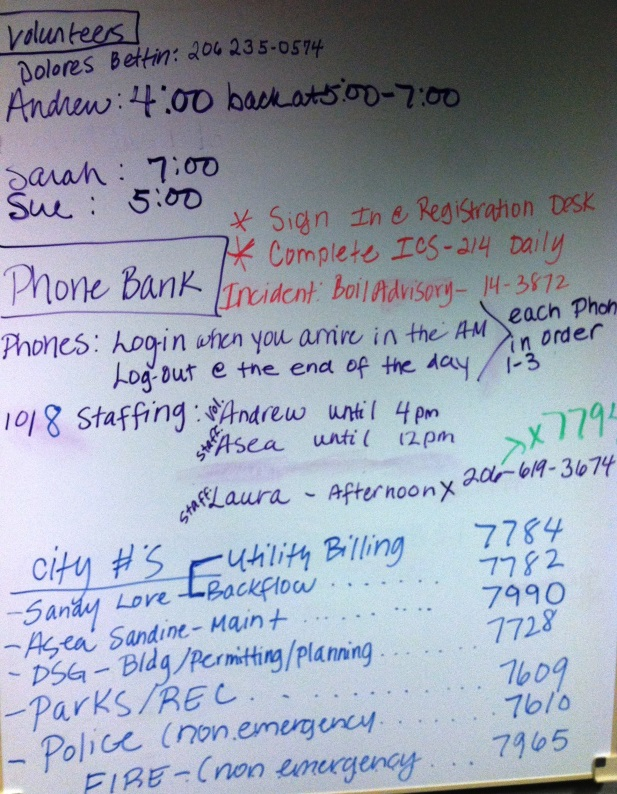 Volunteers
Dolores Bettin: 206 235-0574
Andrew: 4:00 back at 5:00-7:00
Sarah: 7:00
Sue: 5:00
* Sign In @ Registration Desk
* Complete ICS-214 Daily
Phone Bank
Incident: Boil Advisory - 14-3872
Phones: Log-in when you arrive in the AM
Log-out @ the end of the day
each Phon
in order
1-3
10/8 Staffing: Vol. Andrew until 4pm
staff Asea until 12pm
x779
staff Laura - Afternoon x 206-619-3674
City #'s Utility Billing 7784
- Sandy Love - Backflow ........ 7782
- Asea Sandine - Maint ........ 7990
- DSG - Bldg/Permitting/planning 7728
- Parks/REC............ 7609
- Police (non.emergency....... 7610
FIRE - (non emergency... 7965